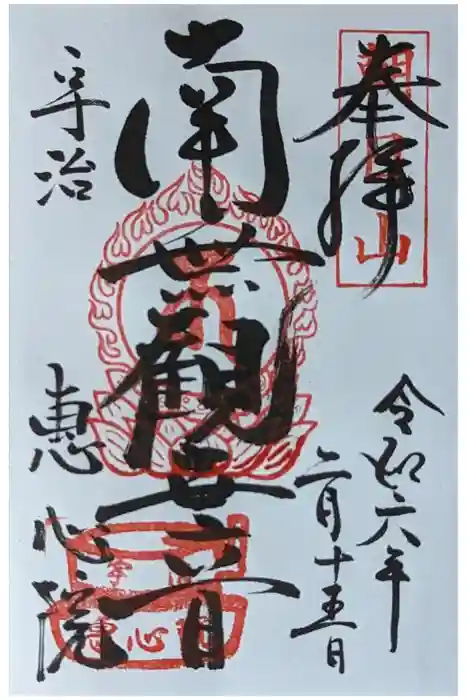 奉拝
朝日山
令和六年
二月十五日
南無觀世音
宇治
惠心院
宇治
惠心院